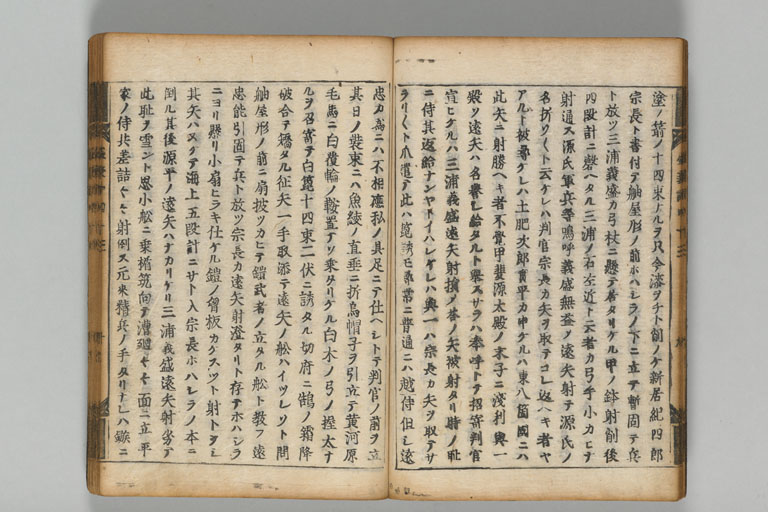 塗ノ箭ノ十四束ナルヲ只今漆ヲチト削ノケ新居紀四郎
宗長ト書付テ舳屋形ノ前ホハシラノ下ニ立テ暫固テ兵
ト放ツ三浦義盛カ弓杖ニ懸テ居タリケル甲ノ鉢射削後
四段計ニ磬ヘタル三浦ノ石左近ト云者カ弓手ノ小カヒナ
射通ス源氏軍兵等嗚呼義盛無益ノ遠矢射テ源氏ノ
名折ツト云ケレハ判官宗長カ矢ヲ取テコレ返ヘキ者ヤ
アルト被尋ケレハ土肥次郎實平カ申ケルハ東八箇國ニハ
此矢ニ射勝ヘキ者不覺甲斐源太殿ノ末子ニ淺利與一
殿ソ遠矢ハ名譽シ給タルト擧ス サラハ奉呼トテ招寄判官
宣ヒケルハ三浦義盛遠矢射損ノ荅ノ矢被射タリ時ノ耻
ニ侍其返給ナンヤトイハレケレハ與一ハ宗長カ矢ヲ取テサ
ラリト爪遣テ此ハ箆誘モ尋常ニ普通ニハ越侍但シ遠
忠カ爲ニハ不相應私ノ具足ニテ仕ヘシトテ判官ノ前ヲ立
其日ノ裝束ニハ魚綾ノ直垂ニ折烏帽子ヲ引立テ黄河原
毛馬ニ白覆輪ノ鞍置テソ乘タリケル白木ノ弓ノ握太ナ
ルヲ召寄テ白箆十四束二伏ニ誘タル切府ニ鵠ノ霜降
破合テ矯タル征矢一手取添テ遠矢ノ舩ハイツレソト問
舳屋形ノ前ニ扇披ツカヒテ鎧武者ノ立タル舩ト教フ遠
忠能引固テ兵ト放ツ宗長カ遠矢射澄タリト存テホハシラ
ニヨリ懸リ小扇ヒラキ仕ケル鎧ノ胷板カケスツト射トヲシ
其矢ハヌケテ海上五段計ニサト入宗長ホハシラノ本ニ
倒ル其後源平ノ遠矢ハナカリケリ三浦義盛遠矢射劣テ
此耻ヲ雪ント思小舩ニ乘楯筑向テ漕廻々々面ニ立平
家ノ侍共差詰々々射倒ス元來精兵ノ手タリナレハ鏃ニ